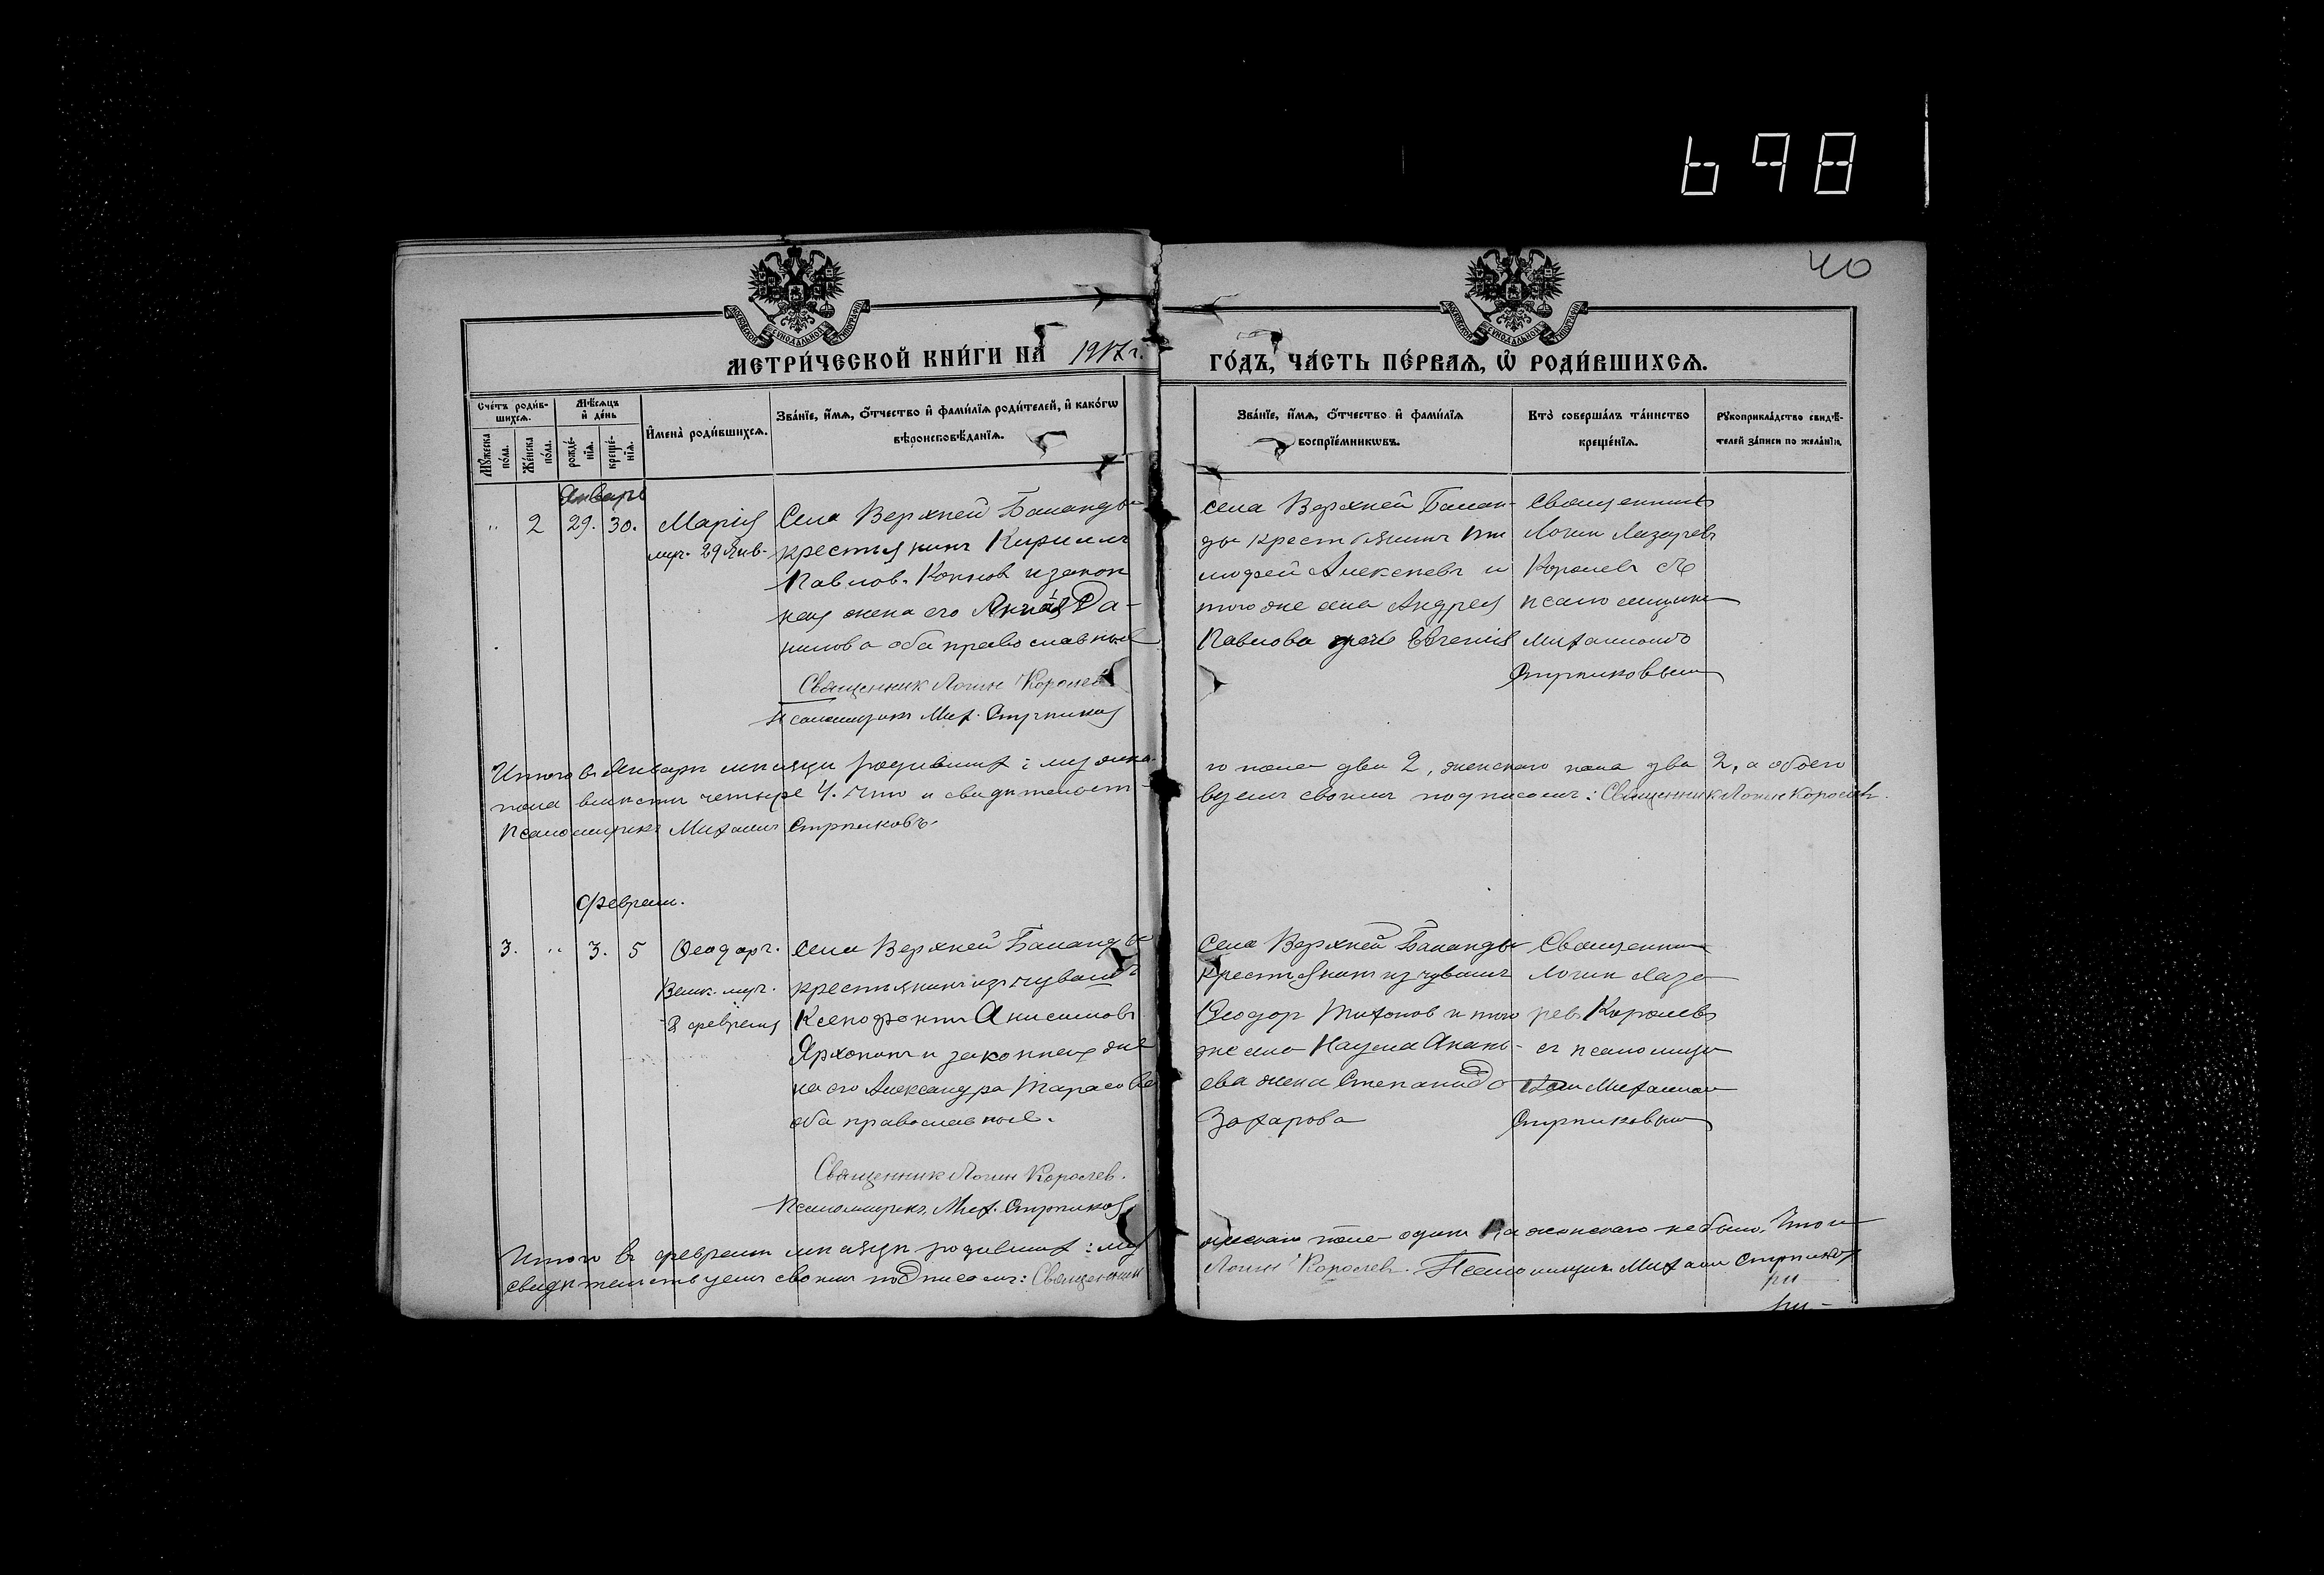 698
40
МЕТРИ́ЧЕСКОЙ КНИ́ГИ НА 1917 г.
ГО́ДЪ, ЧА́СТЬ ПЕ́РВАЯ, Ѡ҆ РОДИ́ВШИХСЯ.
Сче́тъ роди́в-
шихся.
Мѣ́сяцъ
и҆ де́нь
Мꙋ́жеска
по́ла.
Же́нска
по́ла.
рожде́-
нїя.
креще́-
нїя.
И҆мена̀ роди́вшихся.
Зва́нїе, и҆́мя, ѻ҆́тчество и҆ фами́лїя роди́телей, и҆ како́гѡ
вѣроисповѣ́данїя.
Зва́нїе, и҆́мя, ѻ҆́тчество и҆ фами́лїя
воспрїе́мникѡвъ.
Кто̀ соверша́лъ та́инство
креще́нїя.
Рꙋкоприкла́дство свидѣ́-
телей за́писи по жела́нїю
Январь
" 2 29. 30.
Марія
муч. 29 Янв.
Села Верхней Баланды
крестьянинъ Кириллъ
Павлов. Конновъ и закон
ная жена его Анна Да-
нилова оба православные
Священник Логин Королев
Псаломщикъ Мих. Стрпиков
села Верхней Балан-
ды крестьянинъ Ти
мофей Алексеевъ и
того же села Андрея
Павлова дочь Евгенія
Священникъ
Логин Лазаревъ
Королевъ съ
псаломщикомъ
Михаиломъ
Стрпиковым
Итого въ Январѣ мѣсяцѣ родившихъ: мужска
го пола два 2, женскаго пола два 2, а обоего
пола вмѣстѣ четыре 4. Что и свидѣтельст-
вуемъ своимъ подписомъ: Священник Логин Королевъ.
Псаломщикъ Михаилъ Стрпиковъ.
Февраль.
3. " 3. 5
Феодоръ.
Велик. муч.
8 февраля
Села Верхней Баланды
крестьянинъ изъ чувашъ
Ксенофонтъ Анисимовъ
и законная же
на его Александра Тарасова
оба православные.
Священник Логин Королев.
Псаломщикъ. Мих. Стрпиков
Села Верхней Баланды
крестьянинъ из чувашъ
Феодор Тихонов и того
же села Наума Анань-
ева жена Степанида
Захарова
Священник
Логин Лаза
ревъ Королевъ
съ псаломщи
комъ Михаиломъ
Стрпиковым
Итого въ февралѣ мѣсяцѣ родившихъ: му
жскаго пола один женскаго не было. Что и
свидѣтельствуемъ своимъ подписомъ: Священник
Логин Королевъ. Псаломщикъ Михаил Стрпиков